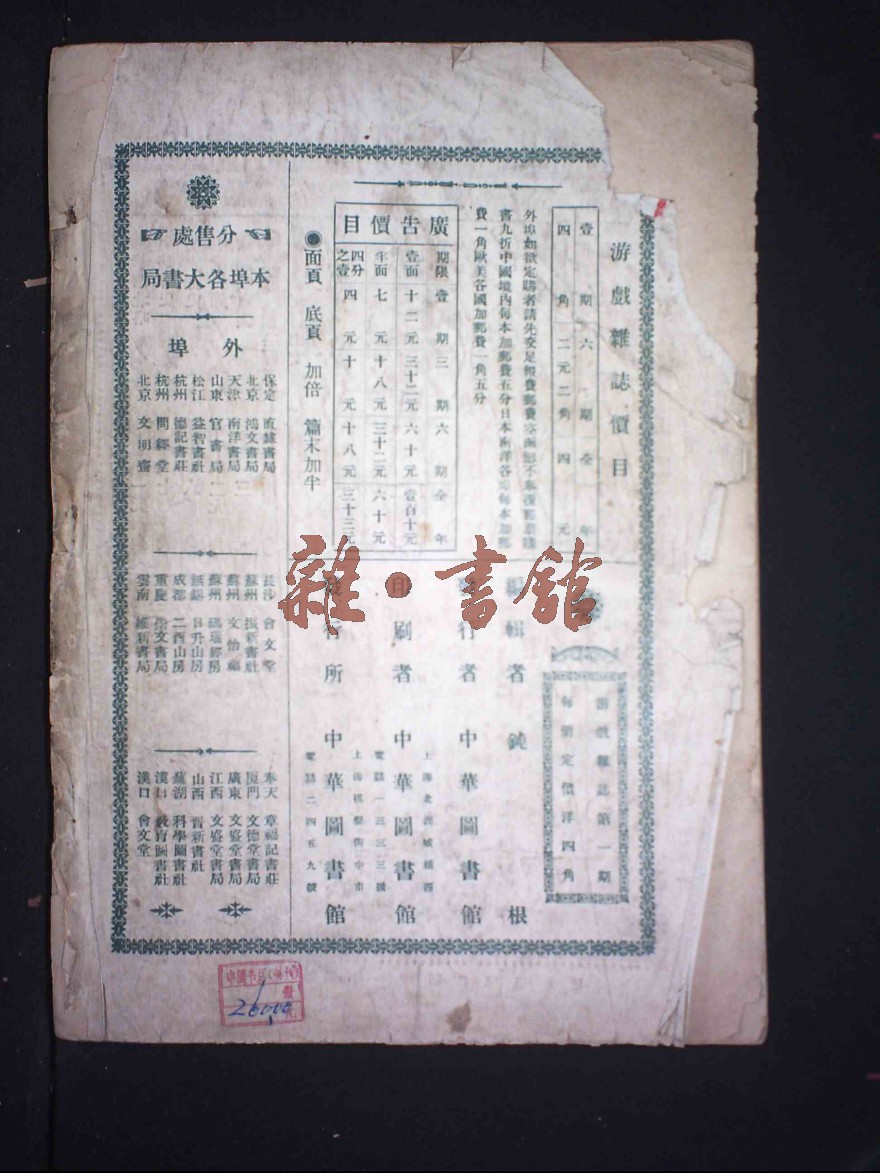 游戲雜誌價目
壹期 六期 全年
四角 二元二角 四元
外埠如欲定購者請先交足報費郵費
書九折中國境內每本加郵費五分日本南洋各埠每本加郵
費一角歐美各國加郵費一角五分
廣告價目
期限 壹期 三期 六期 全年
壹面 十二元 三十二元 六十元 壹百十元
半面 七元 十八元 三十二元 六十元
四分之壹 四元 十元 十八元 三十三元
●面頁 底頁 加倍 篇末加半
游戲雜誌第一期
每冊定價洋四角
編輯者 鈍根
發行者 中華圖書館
上海北
印刷者 中華圖書館
電話一三三三號
上海棋盤街中市
發行所 中華圖書館
電話二四五九號
分售處
本埠各大書局
外埠
保定 直隸書局
北京 鴻文書局
天津 南洋書局
山東 官書局
松江 益智書社
杭州 德記書莊
杭州 問經堂
北京 文明齋
長沙 會文堂
蘇州 振新書社
蘇州 文怡福
蘇州 瑪瑙經房
無錫 日升山房
成都 二酉山房
重慶 文書局
雲南 維新書局
奉天 章福記書莊
廈門 文德堂書局
廣東 文盛堂書局
江西 文盛堂書局
山西 晉新書社
蕪湖 科學圖書社
漢口 教育圖書社
漢口 會文堂
雜·書館
中國书店
26000
元